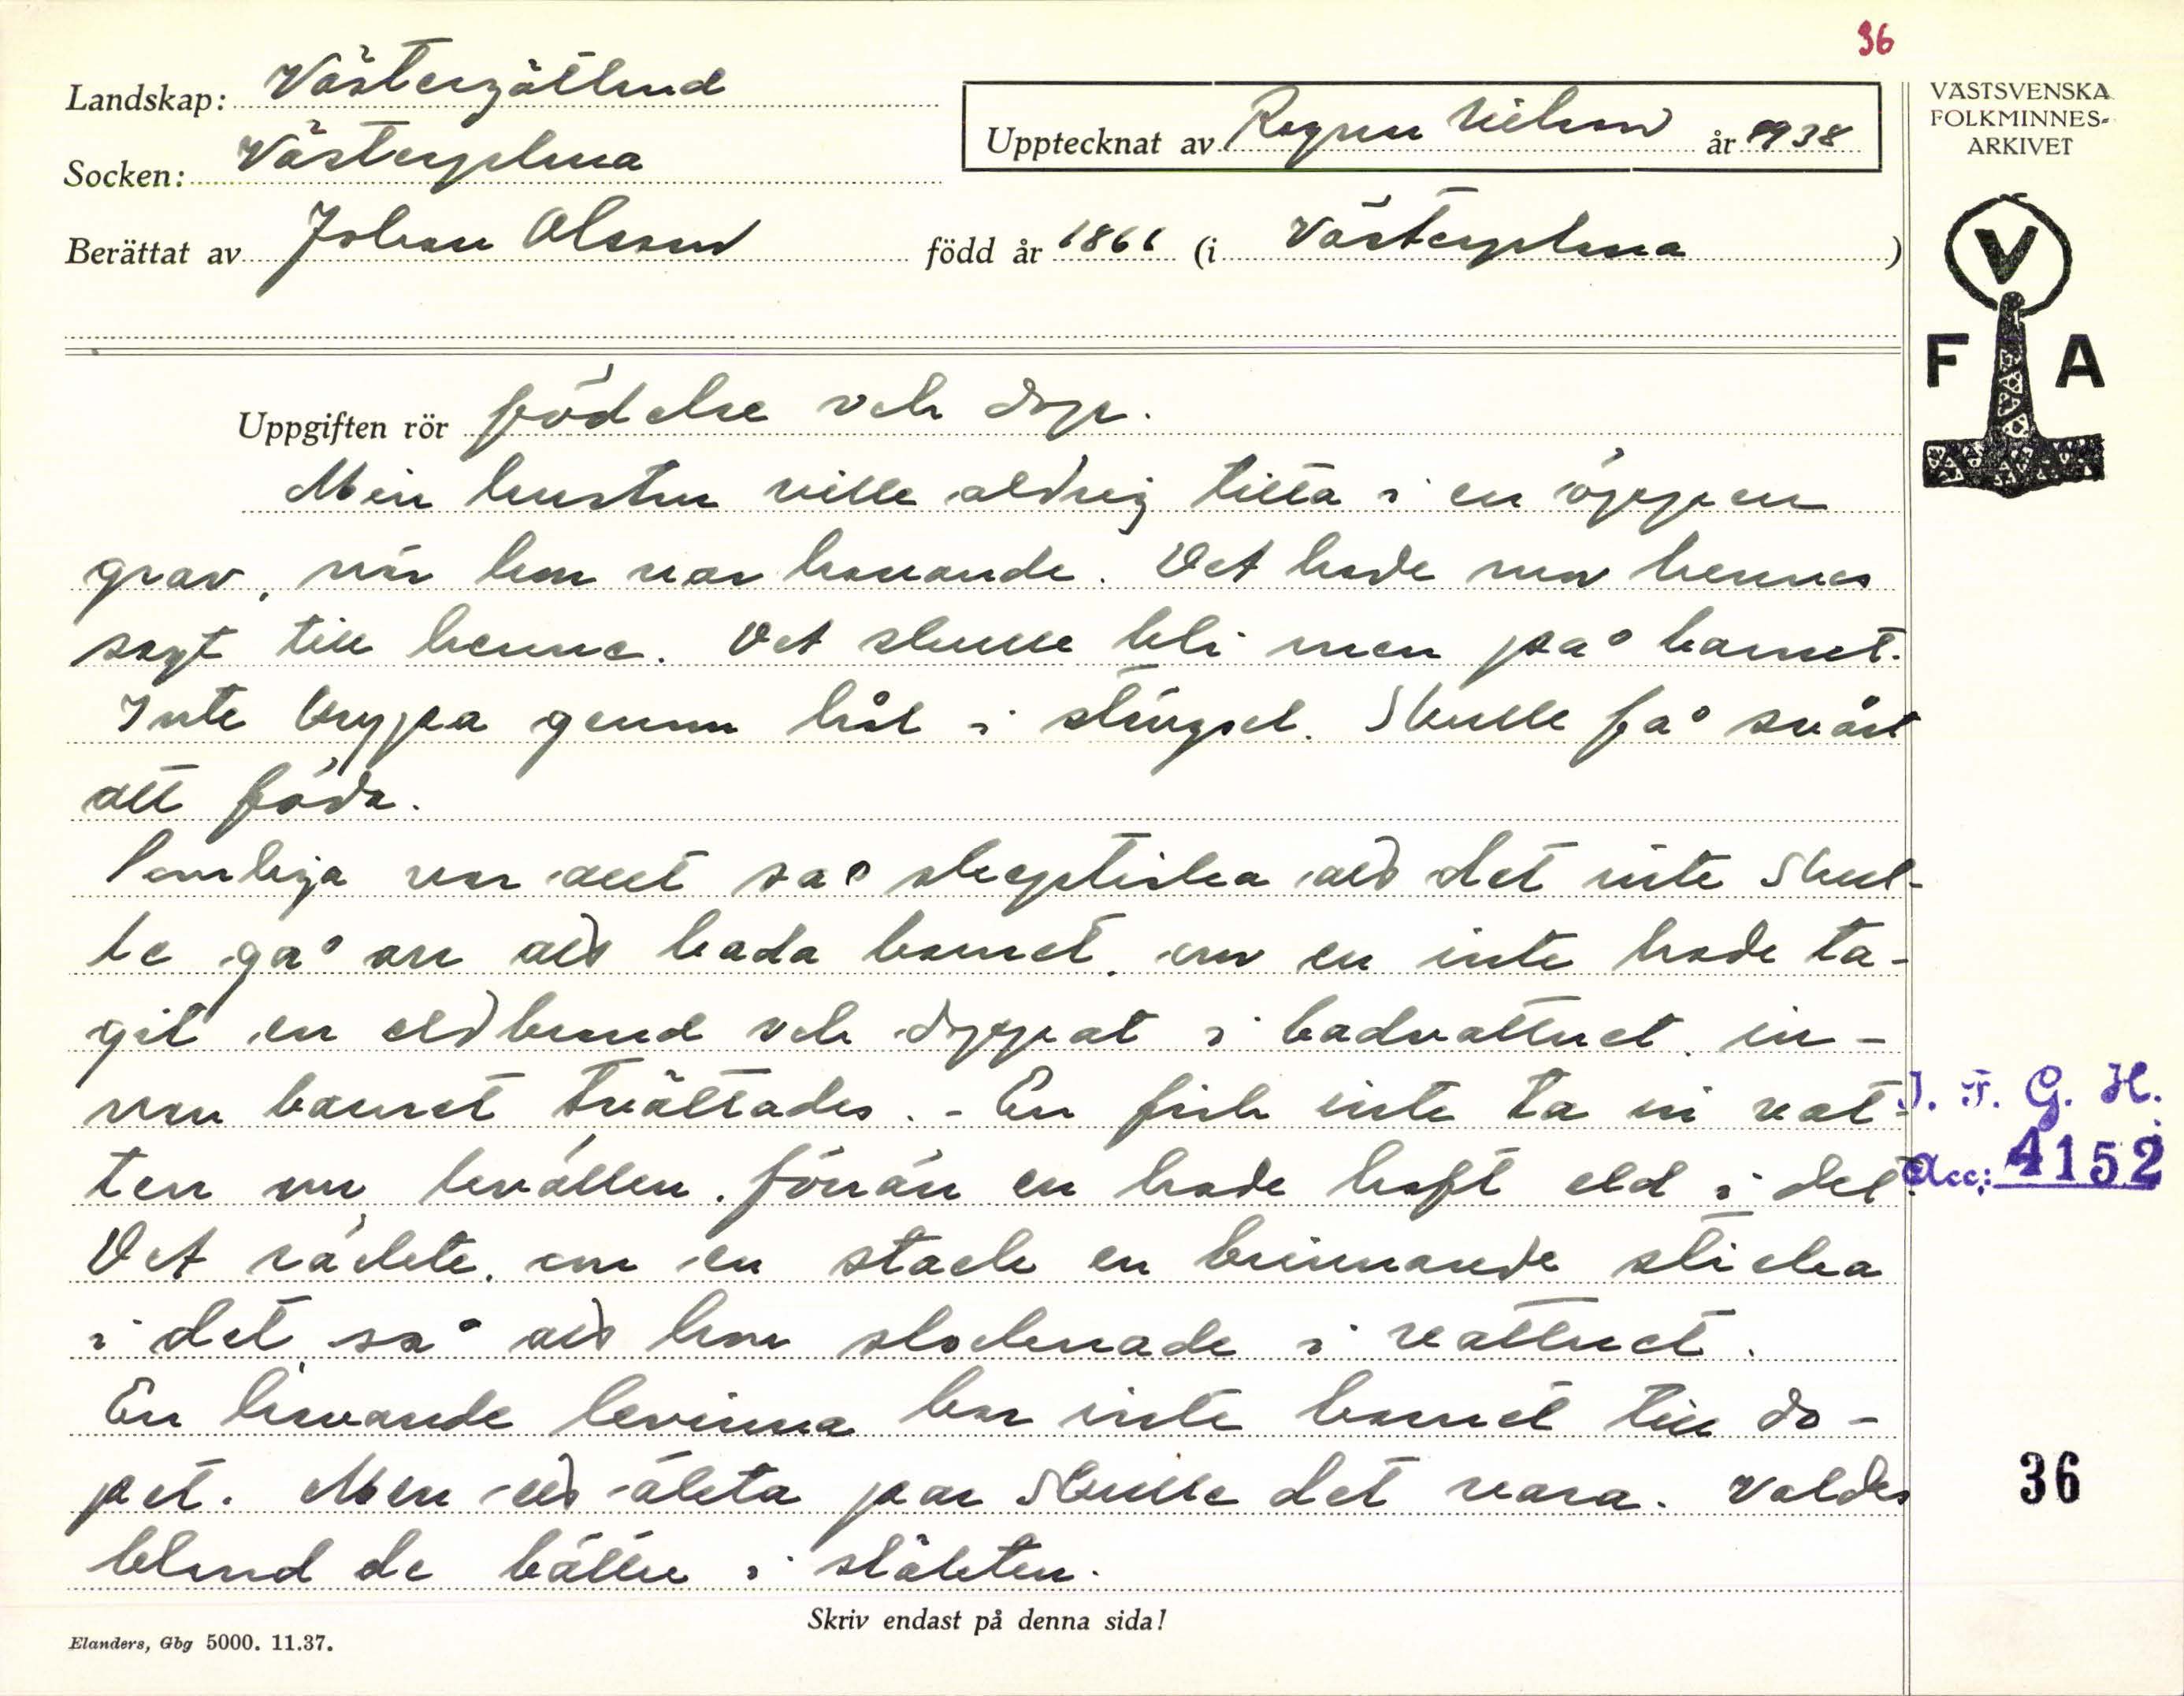 36
Landskap: Västergötland
Upptecknat av Ragnar Nilsson år 1938
VÄSTSVENSKA
FOLKMINNES-
ARKIVET
Socken: Västerplana
Berättat av Johan Olsson född år 1866 (i Västerplana)
V
F A
Uppgiften rör födelse och dop.
Min hustru ville aldrig titta i en öppen
grav, när hon var havande. Det hade mor hennes
sagt till henne. Det skulle bli men på barnet.
Inte krypa genom hål i stängsel. Skulle få svårt
att föda.
Somliga var allt så skeptiska att det inte skul-
le gå an att bada barnet, om en inte hade ta-
git en eldbrand och doppat i badvattnet, in-
nan barnet tvättades. - En fick inte ta in vat-
ten om kvällen, förrän en hade haft eld i det.
Det räckte, om en stack en brinnande sticka
i det, så att hon slocknade i vattnet.
En havande kvinna bar inte barnet till do-
pet. Men ett äkta par skulle det vara. Valdes
bland de bättre i släkten.
I. F. G. H.
Acc: 4152
36
Skriv endast på denna sida!
Elanders, Gbg 5000. 11.37.